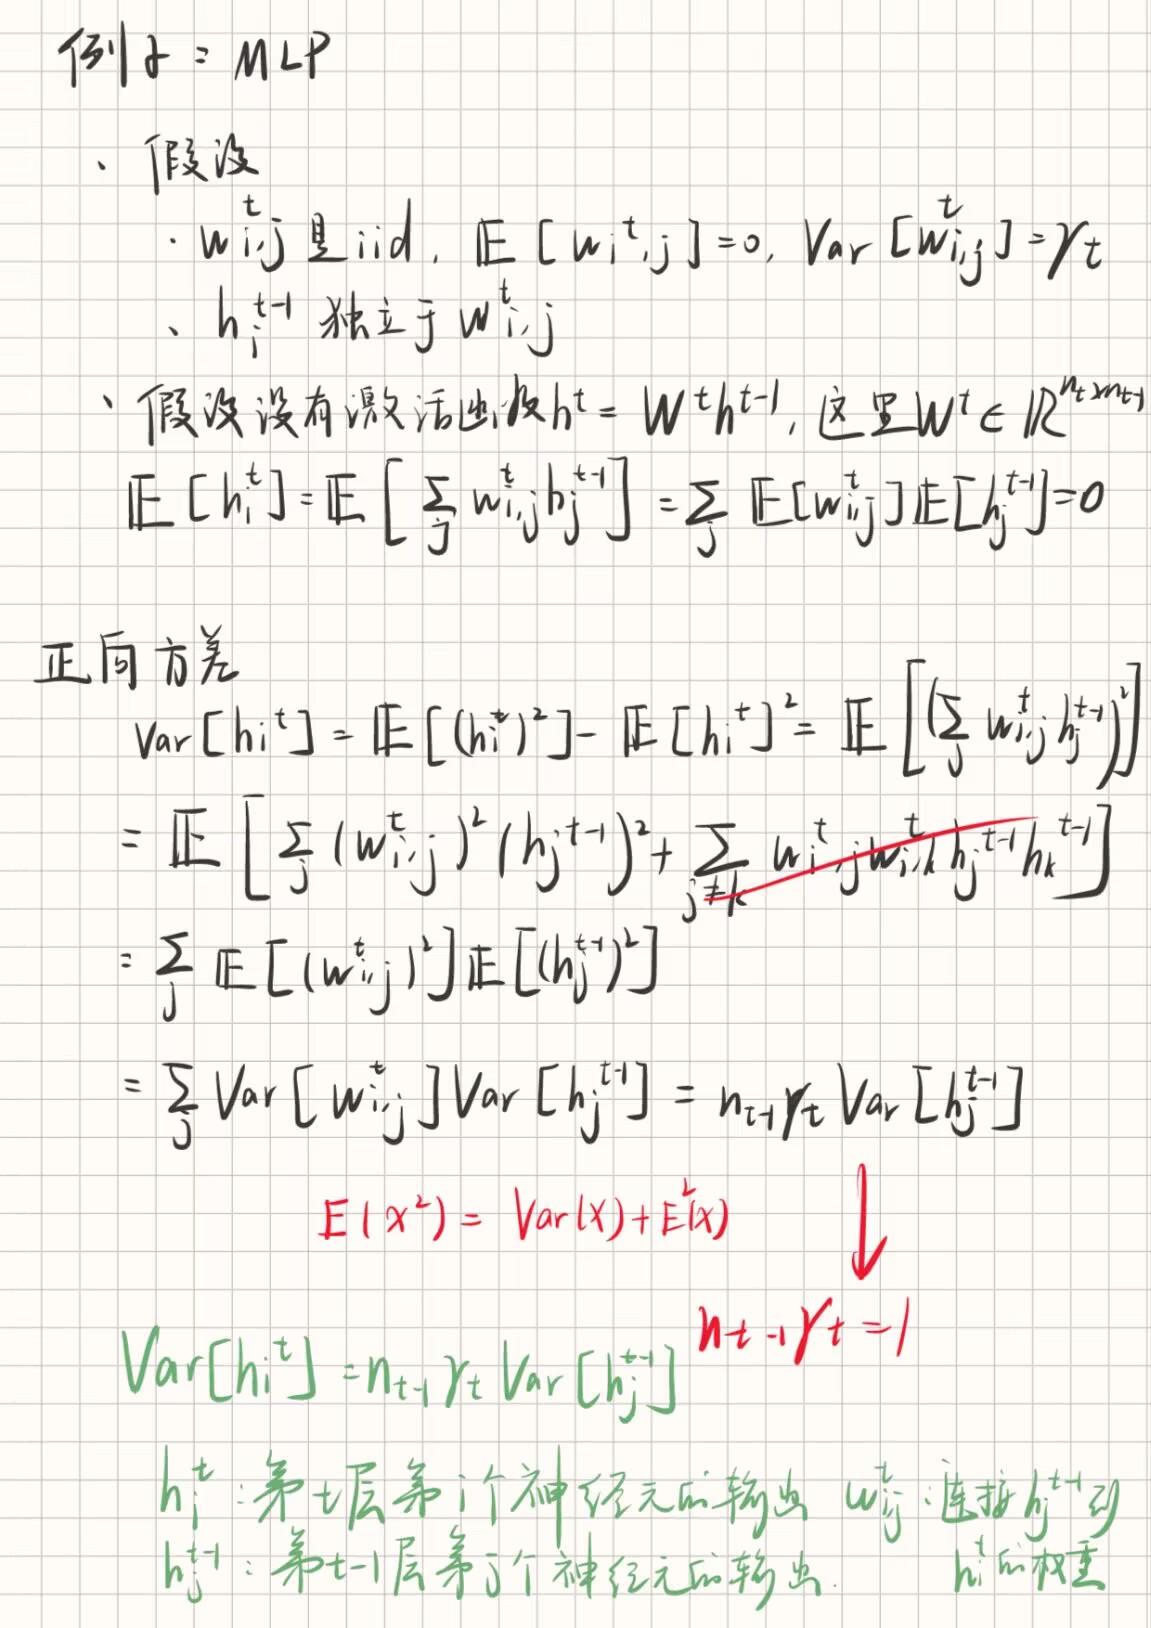 例子：MLP
、假设
· w^t_{i,j} 是 iid, 𝔼[w_i^t,j]=0, Var[w^t_{i,j}]=γ_t
、h_i^{t-1} 独立于 w^t_{i,j}
、假设没有激活函数 h^t = W^t h^{t-1}, 这里 W^t ∈ ℝ^{n_t×n_{t-1}}
𝔼[h_i^t] = 𝔼[∑_j w^t_{i,j} h_j^{t-1}] = ∑_j 𝔼[w^t_{i,j}] 𝔼[h_j^{t-1}] = 0
正向方差
Var[h_i^t] = 𝔼[(h_i^t)^2] - 𝔼[h_i^t]^2 = 𝔼[(∑_j w^t_{i,j} h_j^{t-1})^2]
= 𝔼[∑_j (w^t_{i,j})^2 (h_j^{t-1})^2 + ∑_{j≠k} w^t_{i,j} w^t_{i,k} h_j^{t-1} h_k^{t-1}]
= ∑_j 𝔼[(w^t_{i,j})^2] 𝔼[(h_j^{t-1})^2]
= ∑_j Var[w^t_{i,j}] Var[h_j^{t-1}] = n_{t-1} γ_t Var[h_j^{t-1}]
E(x^2) = Var(X) + E^2(x)
n_{t-1} γ_t = 1
Var[h_i^t] = n_{t-1} γ_t Var[h_j^{t-1}]
h_i^t : 第t层第i个神经元的输出 w^t_{ij} : 连接 h_j^{t-1} 到
h_j^{t-1} : 第t-1层第j个神经元的输出. h_i^t 的权重